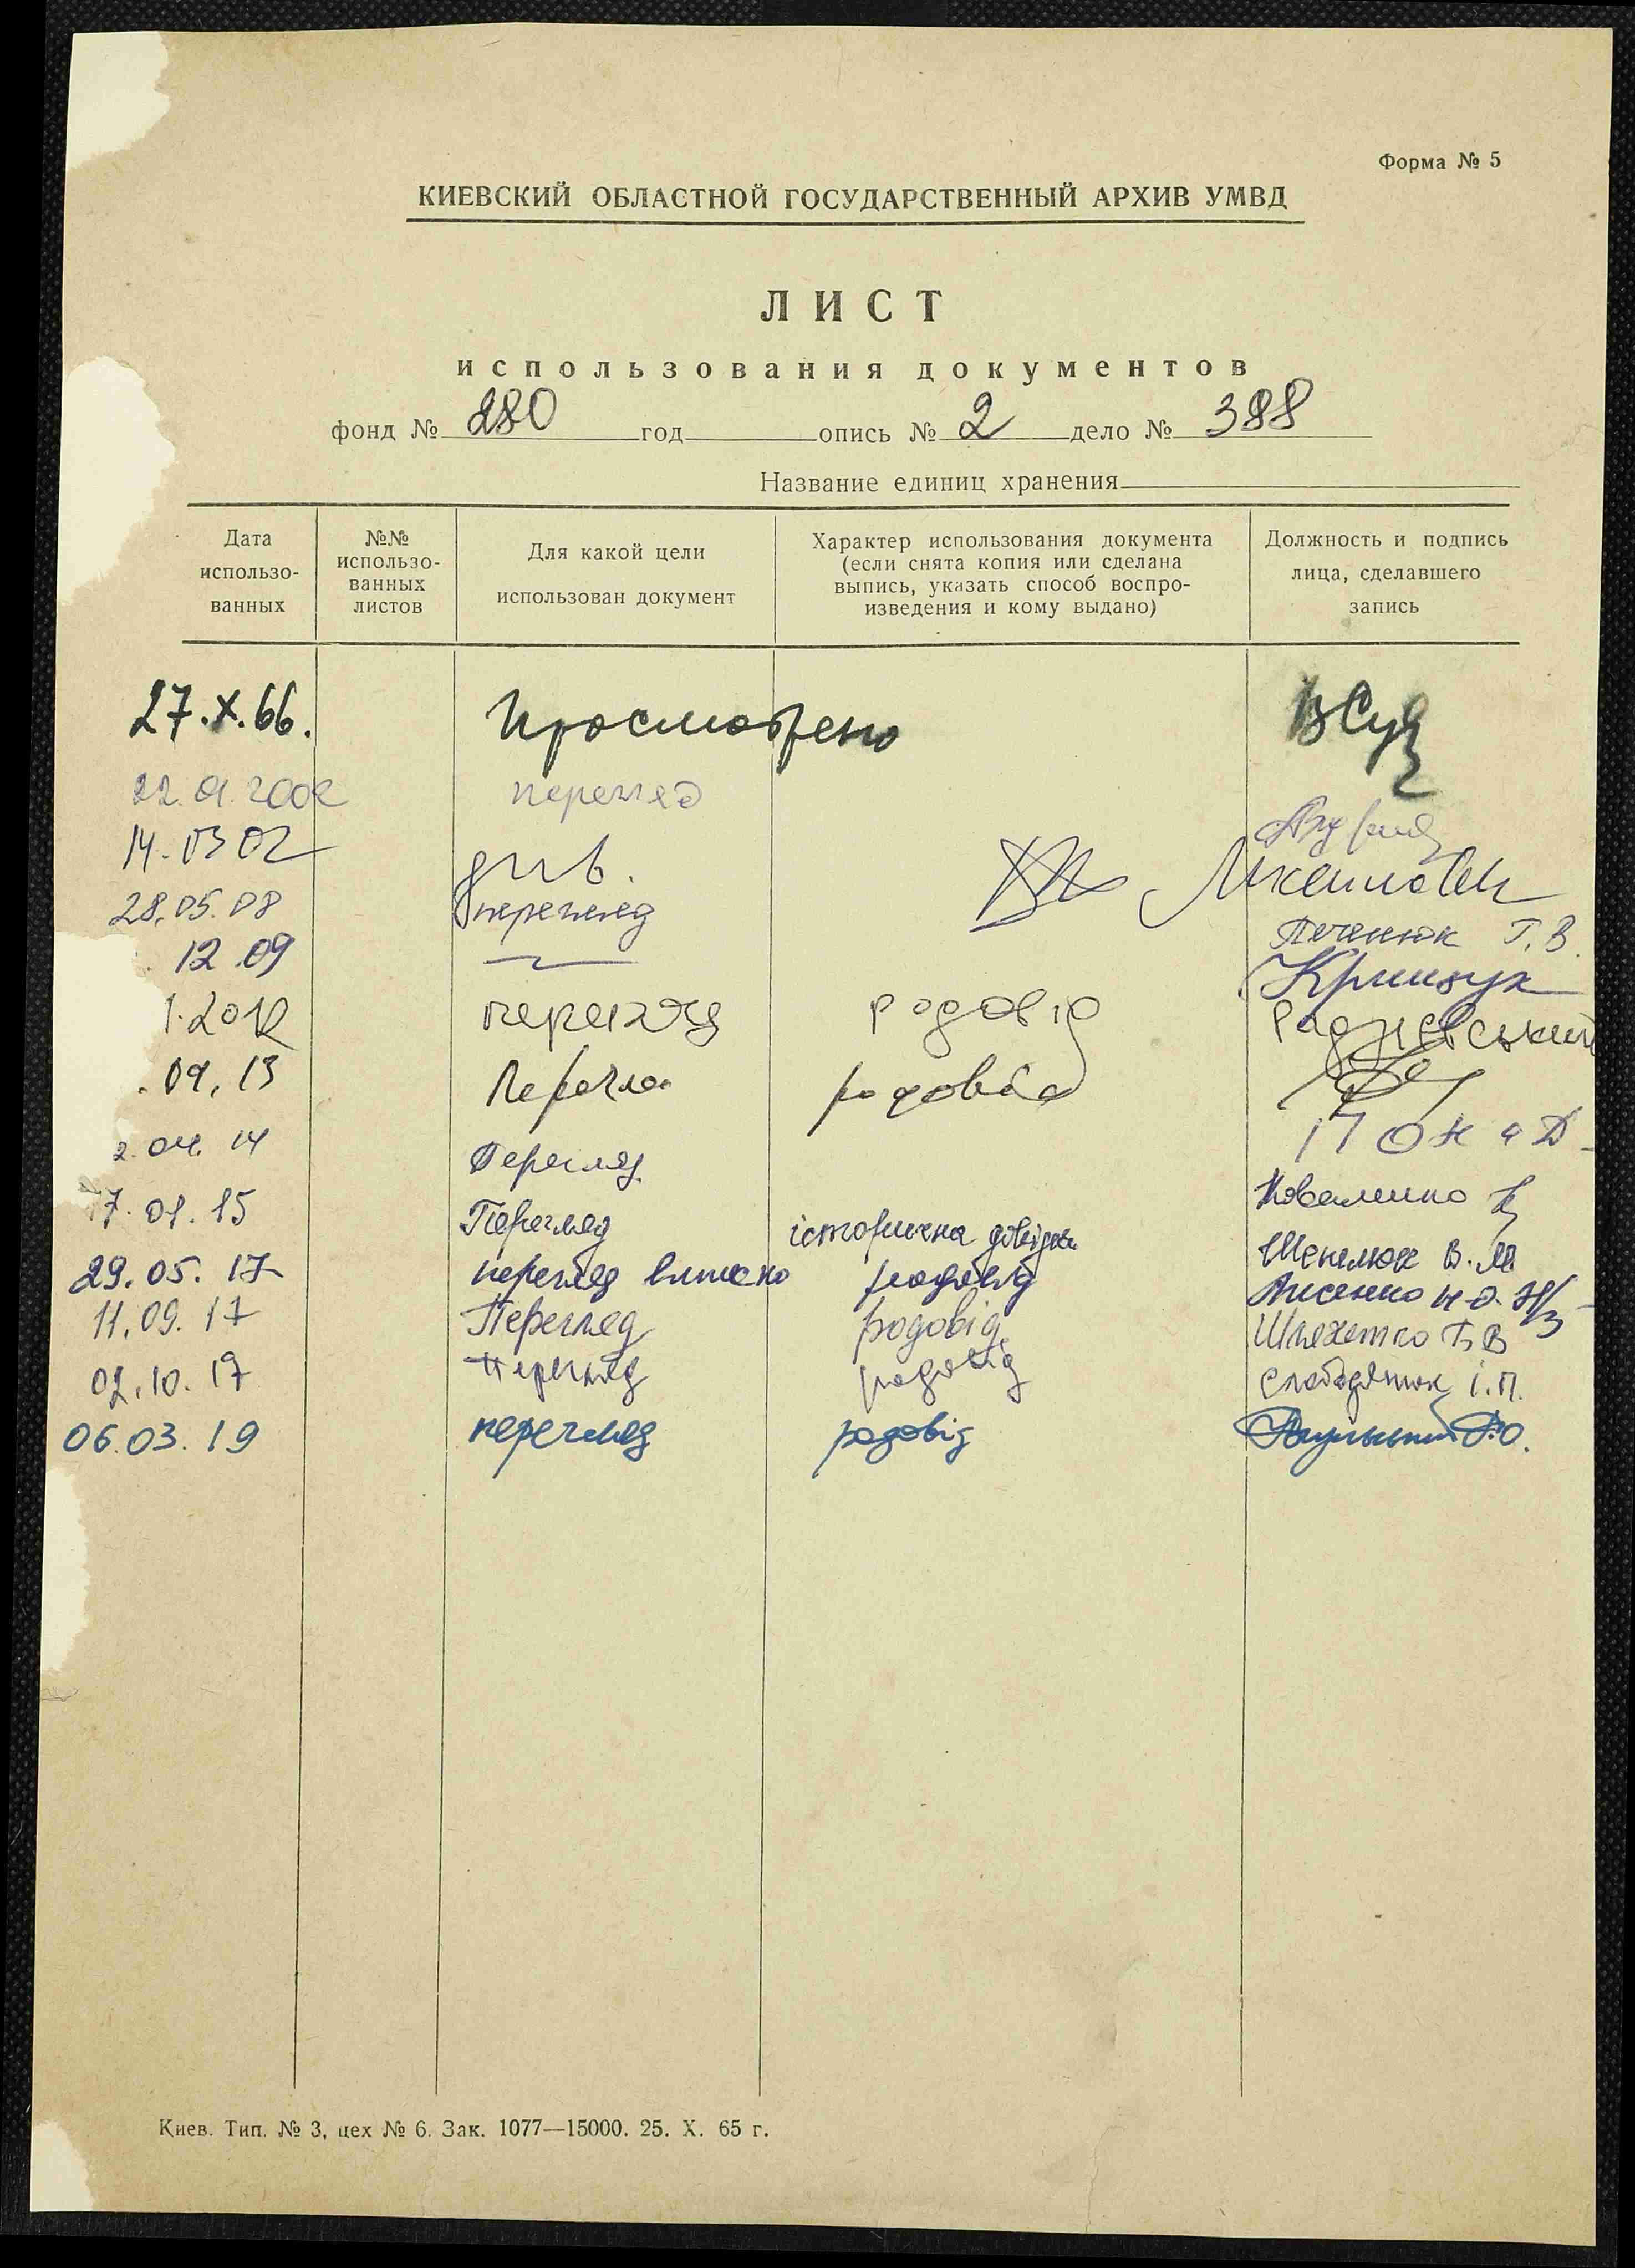 Форма № 5
КИЕВСКИЙ ОБЛАСТНОЙ ГОСУДАРСТВЕННЫЙ АРХИВ УМВД
ЛИСТ
использования документов
фонд № 280 год опись № 2 дело № 388
Название единиц хранения
Дата использо- ванных
№№ использо- ванных листов
Для какой цели использован документ
Характер использования документа (если снята копия или сделана выпись, указать способ воспро- изведения и кому выдано)
Должность и подпись лица, сделавшего запись
27.X.66. Просмотрено
22.01.2002 перегляд
14.03 02
28.05.08 перегляд Печенюк Г.В.
12.09 Крищук
1.2012 перегляд родовід
.09.13 Перегляд родовід
2.04.14 Перегляд
17.01.15 Перегляд історична довідка Коваленко
29.05.17 перегляд родовід Шепелюк В.М.
11.09.17 Перегляд родовід Лисенко
02.10.17 Перегляд родовід Слободянюк І.П.
06.03.19 перегляд родовід
Киев. Тип. № 3, цех № 6. Зак. 1077—15000. 25. X. 65 г.